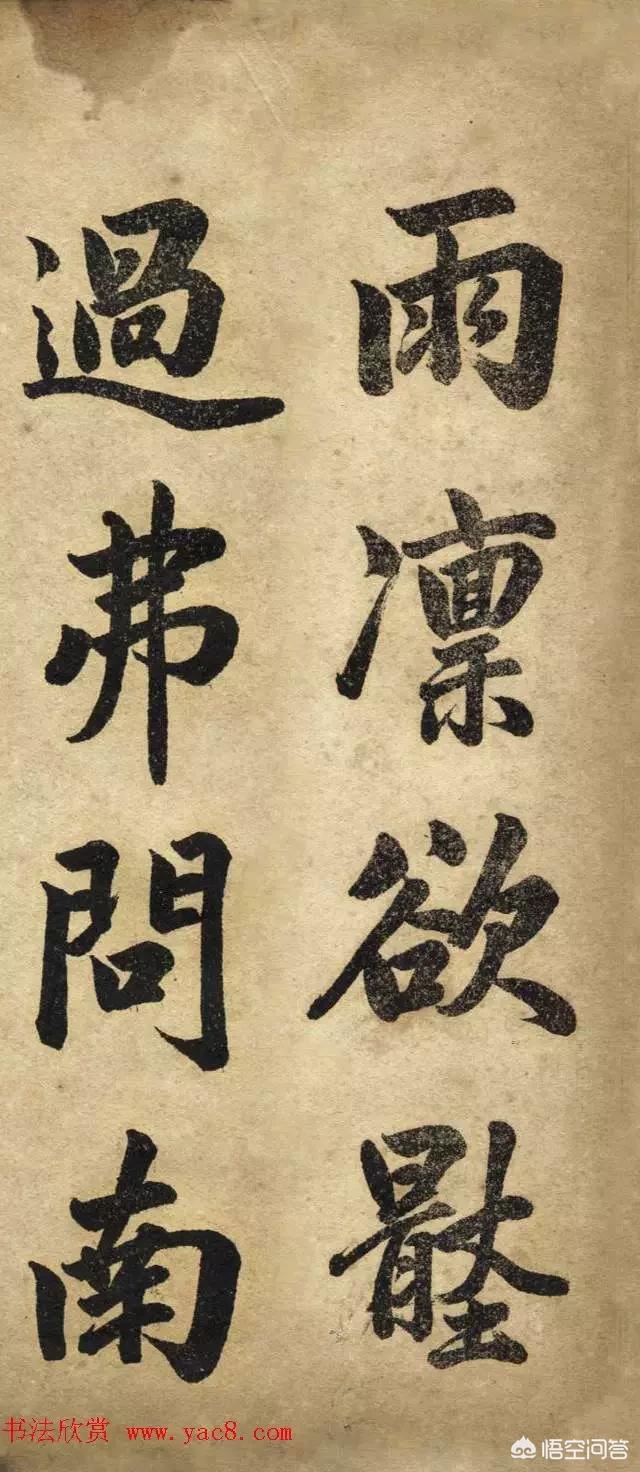 雨凛欲
過弗問南
书法欣赏 www.yac8.com
悟空问答